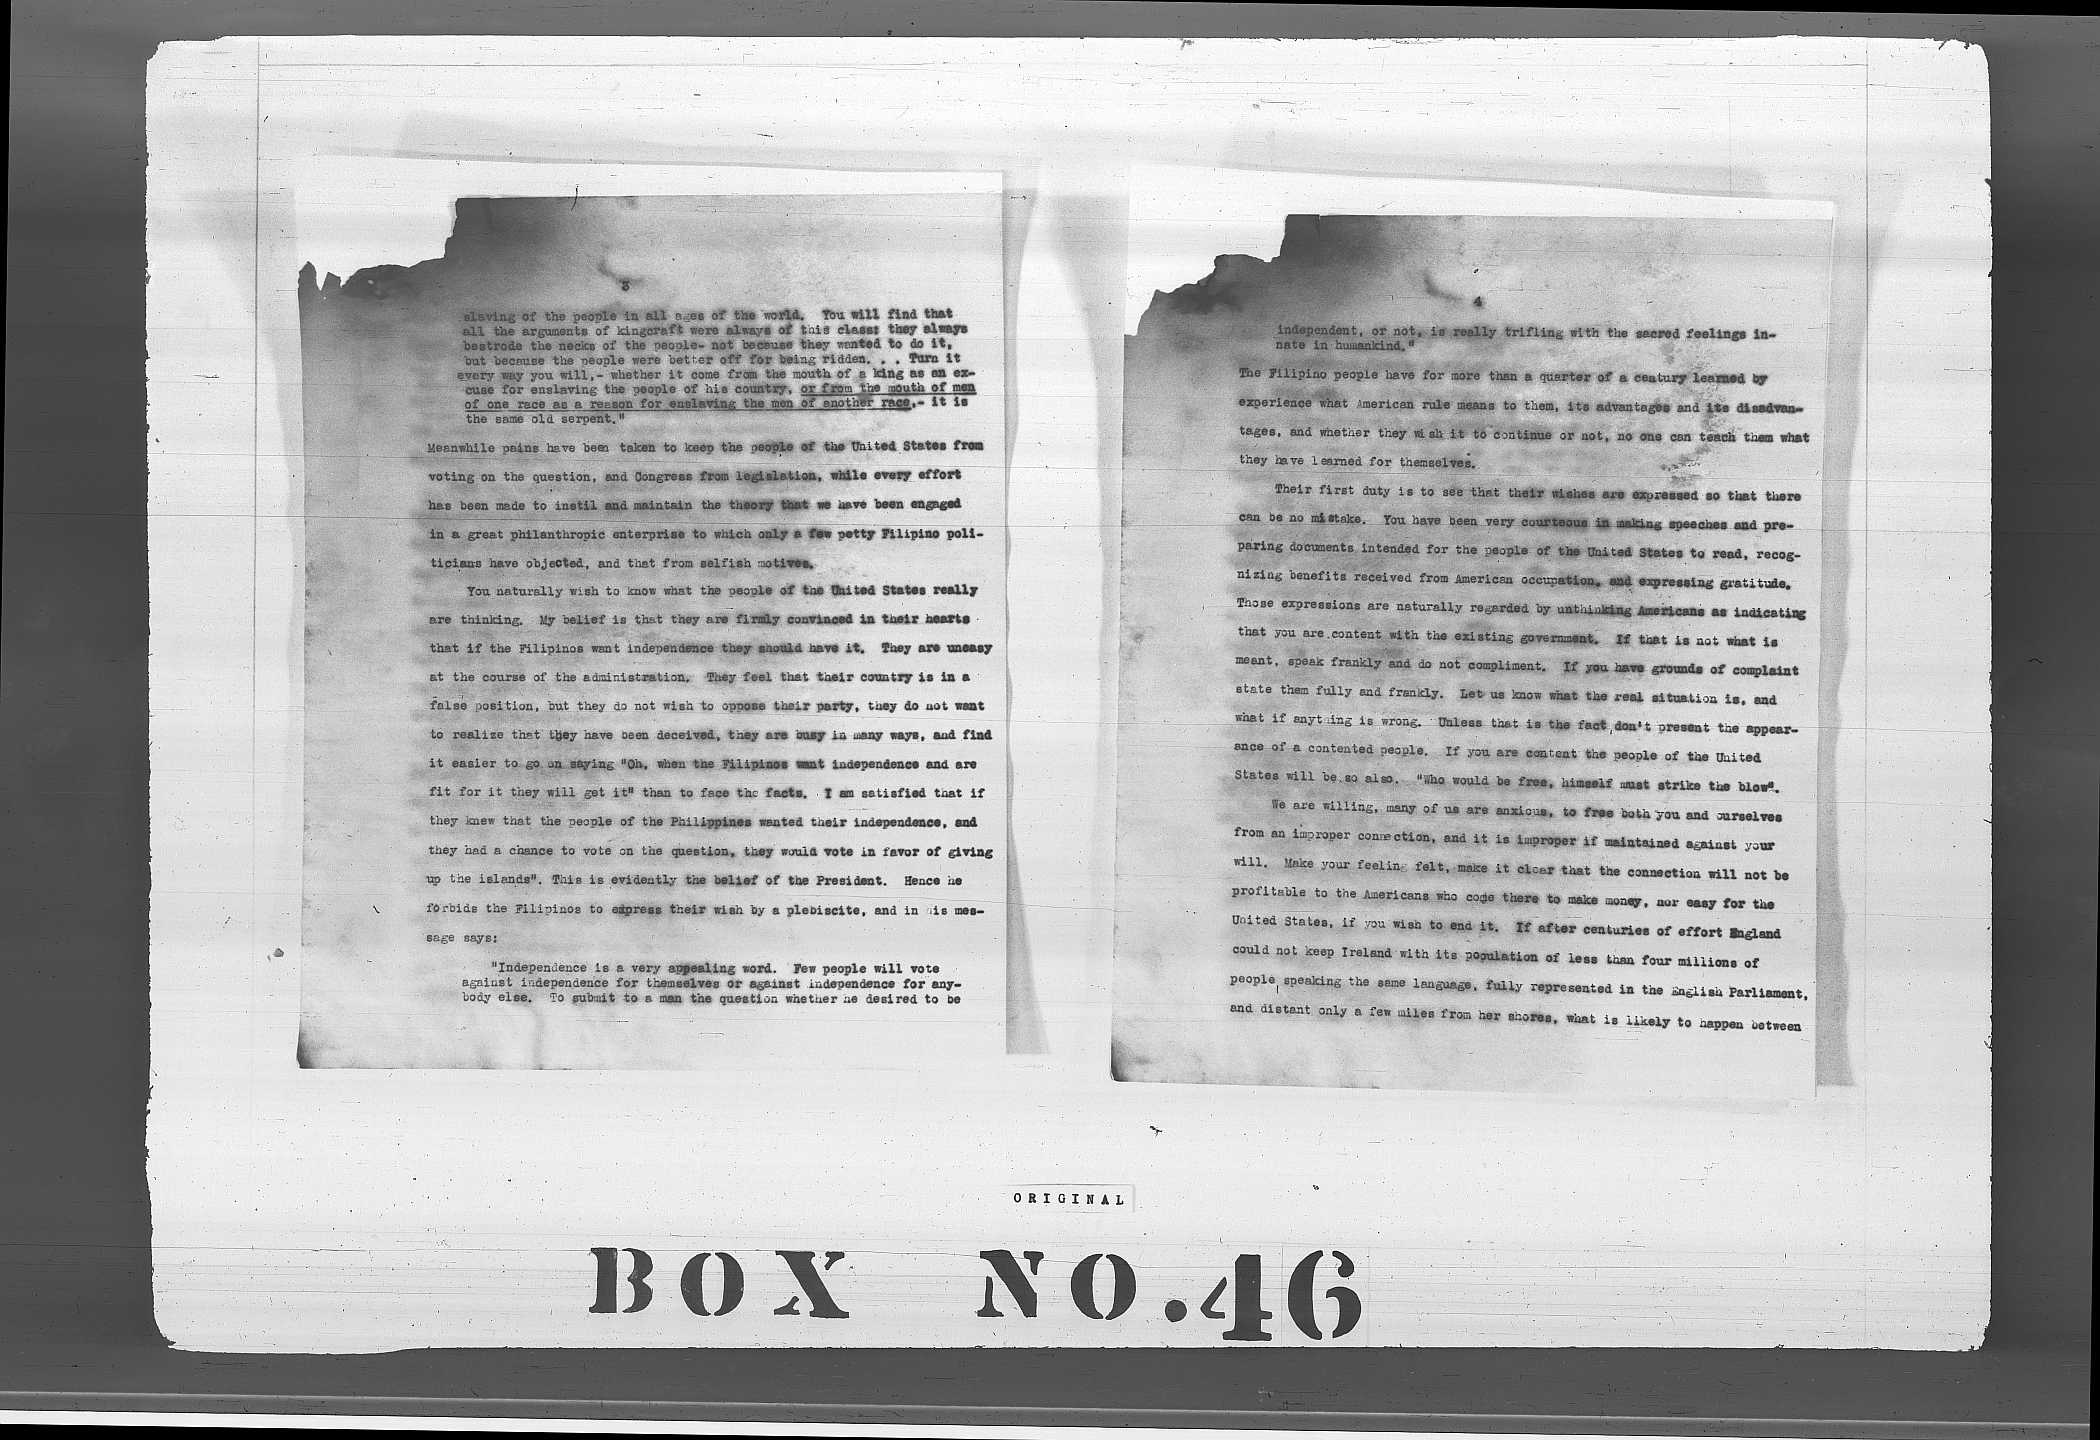 3
slaving of the people in all ages of the world. You will find that
all the arguments of kingcraft were always of this class: they always
bestrode the necks of the people- not because they wanted to do it,
but because the people were better off for being ridden. . . Turn it
every way you will,- whether it come from the mouth of a king as an ex-
cuse for enslaving the people of his country, or from the mouth of men
of one race as a reason for enslaving the men of another race,- it is
the same old serpent."
Meanwhile pains have been taken to keep the people of the United States from
voting on the question, and Congress from legislation, while every effort
has been made to instil and maintain the theory that we have been engaged
in a great philanthropic enterprise to which only a few petty Filipino poli-
ticians have objected, and that from selfish motives.
You naturally wish to know what the people of the United States really
are thinking. My belief is that they are firmly convinced in their hearts
that if the Filipinos want independence they should have it. They are uneasy
at the course of the administration. They feel that their country is in a
false position, but they do not wish to oppose their party, they do not want
to realize that they have been deceived, they are busy in many ways, and find
it easier to go on saying "Oh, when the Filipinos want independence and are
fit for it they will get it" than to face the facts. I am satisfied that if
they knew that the people of the Philippines wanted their independence, and
they had a chance to vote on the question, they would vote in favor of giving
up the islands". This is evidently the belief of the President. Hence he
forbids the Filipinos to express their wish by a plebiscite, and in his mes-
sage says:
"Independence is a very appealing word. Few people will vote
against independence for themselves or against independence for any-
body else. To submit to a man the question whether he desired to be
4
independent, or not, is really trifling with the sacred feelings in-
nate in humankind."
The Filipino people have for more than a quarter of a century learned by
experience what American rule means to them, its advantages and its disadvan-
tages, and whether they wish it to continue or not, no one can teach them what
they have learned for themselves.
Their first duty is to see that their wishes are expressed so that there
can be no mistake. You have been very courteous in making speeches and pre-
paring documents intended for the people of the United States to read, recog-
nizing benefits received from American occupation, and expressing gratitude.
Those expressions are naturally regarded by unthinking Americans as indicating
that you are content with the existing government. If that is not what is
meant, speak frankly and do not compliment. If you have grounds of complaint
state them fully and frankly. Let us know what the real situation is, and
what if anything is wrong. Unless that is the fact, don't present the appear-
ance of a contented people. If you are content the people of the United
States will be so also. "Who would be free, himself must strike the blow".
We are willing, many of us are anxious, to free both you and ourselves
from an improper connection, and it is improper if maintained against your
will. Make your feeling felt, make it clear that the connection will not be
profitable to the Americans who come there to make money, nor easy for the
United States, if you wish to end it. If after centuries of effort England
could not keep Ireland with its population of less than four millions of
people speaking the same language, fully represented in the English Parliament,
and distant only a few miles from her shores, what is likely to happen between
ORIGINAL
BOX NO. 46